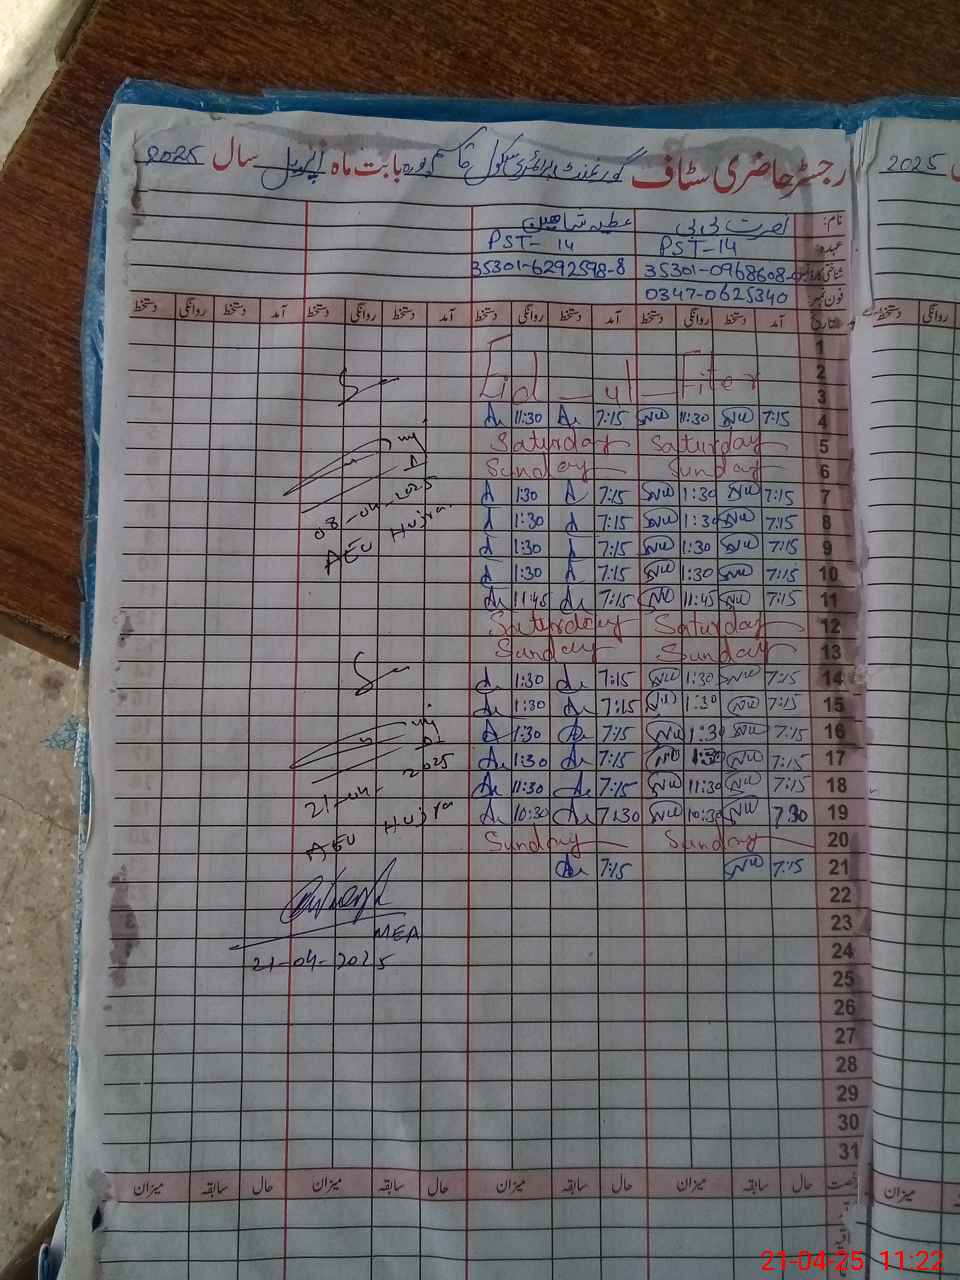 رجسٹر حاضری سٹاف گورنمنٹ پرائمری سکول قاسم پورہ بابت ماہ اپریل سال 2025
2025
نام: نصرت بی بی عطیہ شاہین
عہدہ: PST-14 PST-14
35301-0968608- 35301-6292598-8
فون نمبر: 0347-0625340
تاریخ آمد دستخط روانگی دستخط آمد دستخط روانگی دستخط آمد دستخط روانگی دستخط آمد دستخط روانگی دستخط
1
2 Eid_ul_Fiter
3
4 7:15 11:30 7:15 11:30
5 Saturday Saturday
6 Sunday Sunday
7 7:15 1:30 7:15 1:30
8 7:15 1:30 7:15 1:30
9 7:15 1:30 7:15 1:30
10 7:15 1:30 7:15 1:30
11 7:15 11:45 7:15 11:45
12 Saturday Saturday
13 Sunday Sunday
14 7:15 1:30 7:15 1:30
15 7:15 1:30 7:15 1:30
16 7:15 1:30 7:15 1:30
17 7:15 1:30 7:15 1:30
18 7:15 11:30 7:15 11:30
19 7:30 10:30 7:30 10:30
20 Sunday Sunday
21 7:15 7:15
22
23
24
25
26
27
28
29
30
31
08-04-2025
AEO Hujra
21-04-2025
AEO Hujra
MEA
21-04-2025
حال سابقہ میزان حال سابقہ میزان حال سابقہ میزان حال سابقہ میزان
روانگی دستخط
میزان
21-04-25 11:22